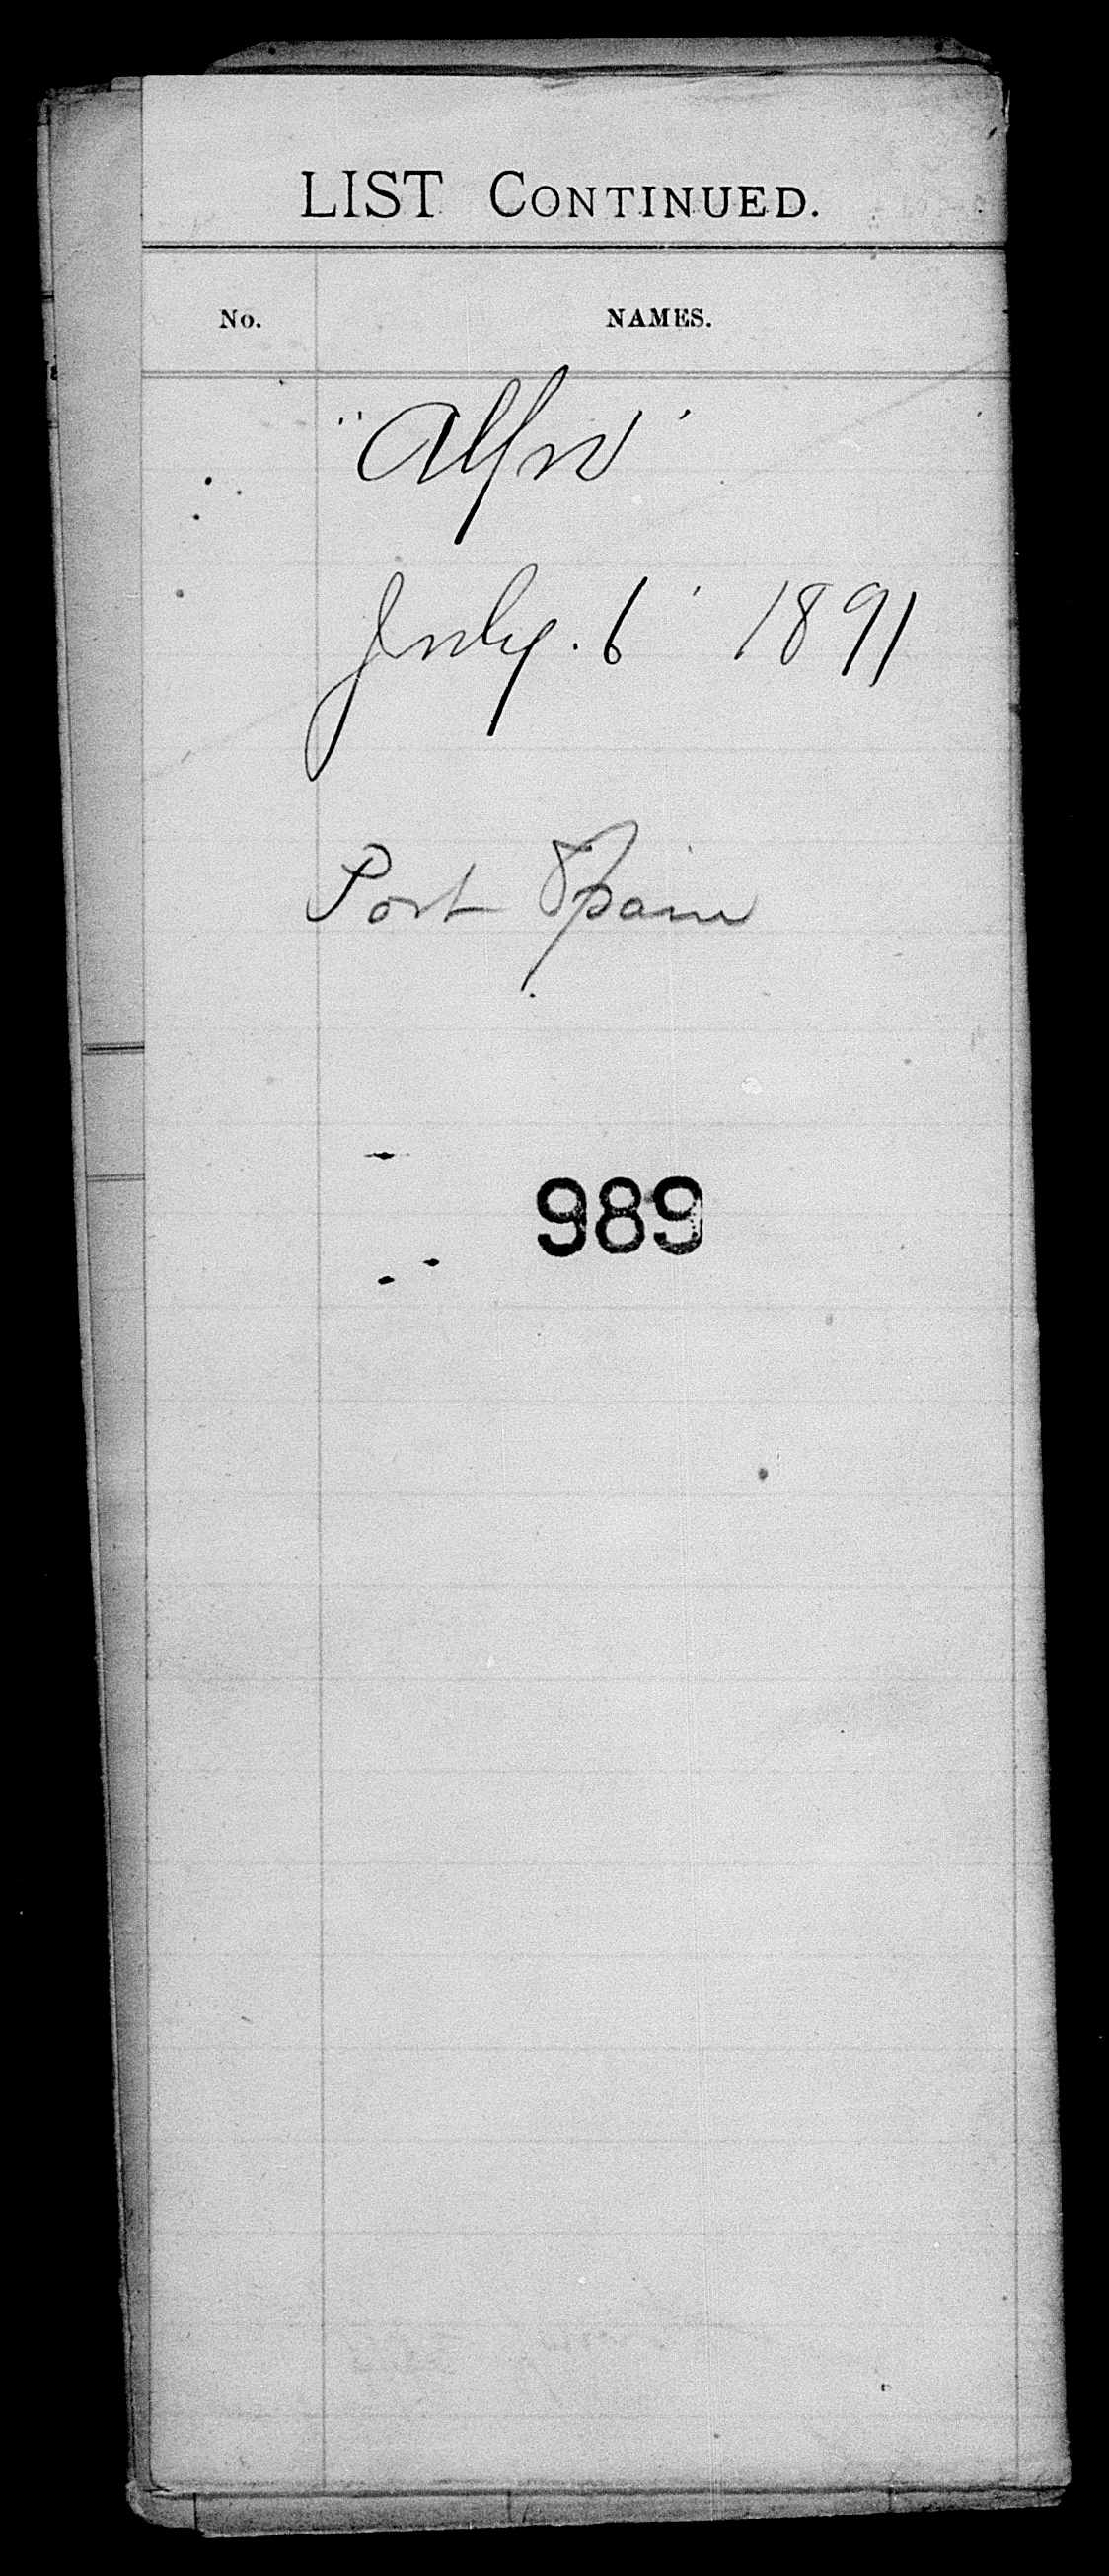 LIST CONTINUED.
No. NAMES.
July. 6 1891
Port Spain
989